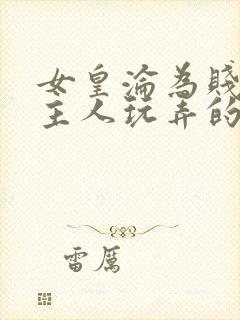 女皇淪為賤
主人玩弄的
雷厲